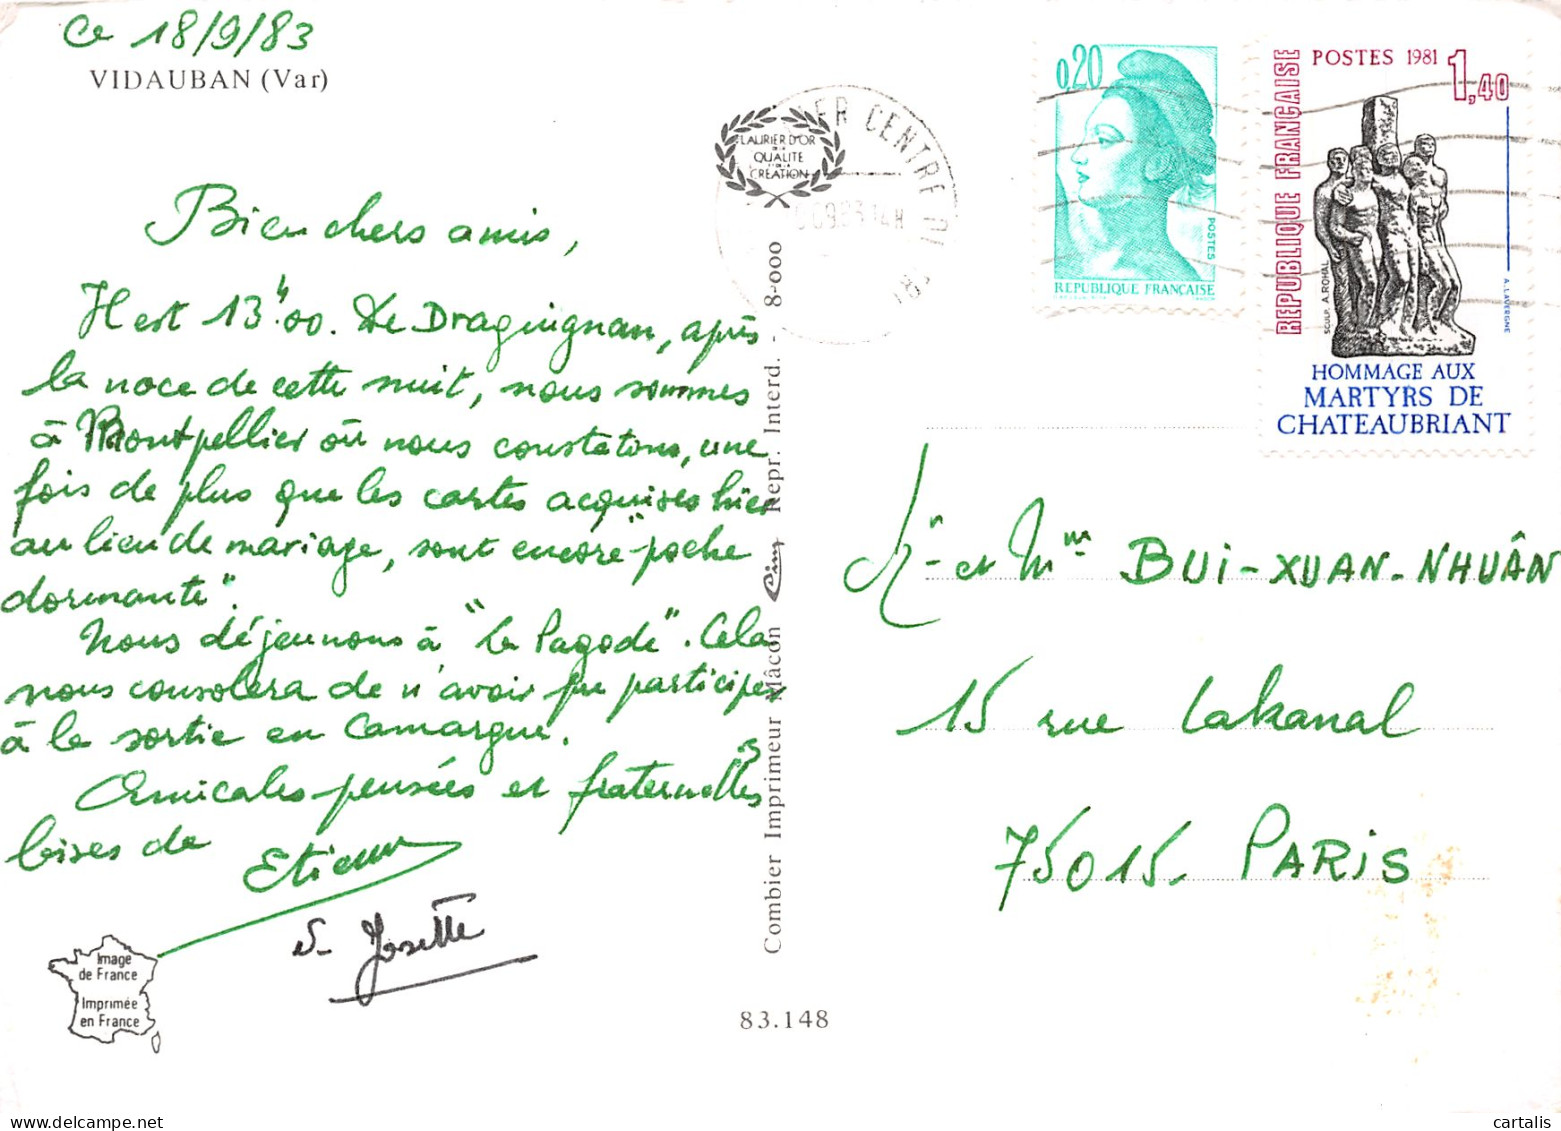 Ce 18/9/83
VIDAUBAN (Var)
Bien chers amis,
Il est 13h00. De Draguignan, après
la noce de cette nuit, nous sommes
à Montpellier où nous constatons, une
fois de plus que les cartes acquises hier
au lieu de mariage, sont encore "poche
dormante".
Nous déjeunons à "La Pagode". Cela
nous consolera de n'avoir pu participer
à la sortie en Camargue.
Amicales pensées et fraternelles
bises de
Etienne
et Josette
Image
de France
Imprimée
en France
Combier Imprimeur Mâcon Cim Repr. Interd. - 8-000
83.148
LAURIER D'OR
DE LA
QUALITE
ET DE LA
CREATION
CENTRE
14H
0,20
POSTES
REPUBLIQUE FRANÇAISE
POSTES 1981 1,40
REPUBLIQUE FRANÇAISE
SCULP. A. ROHAL
A. LAVERGNE
HOMMAGE AUX
MARTYRS DE
CHATEAUBRIANT
Mr et Mme BUI-XUAN-NHUÂN
15 rue Lakanal
75015 - PARIS
delcampe.net
cartalis